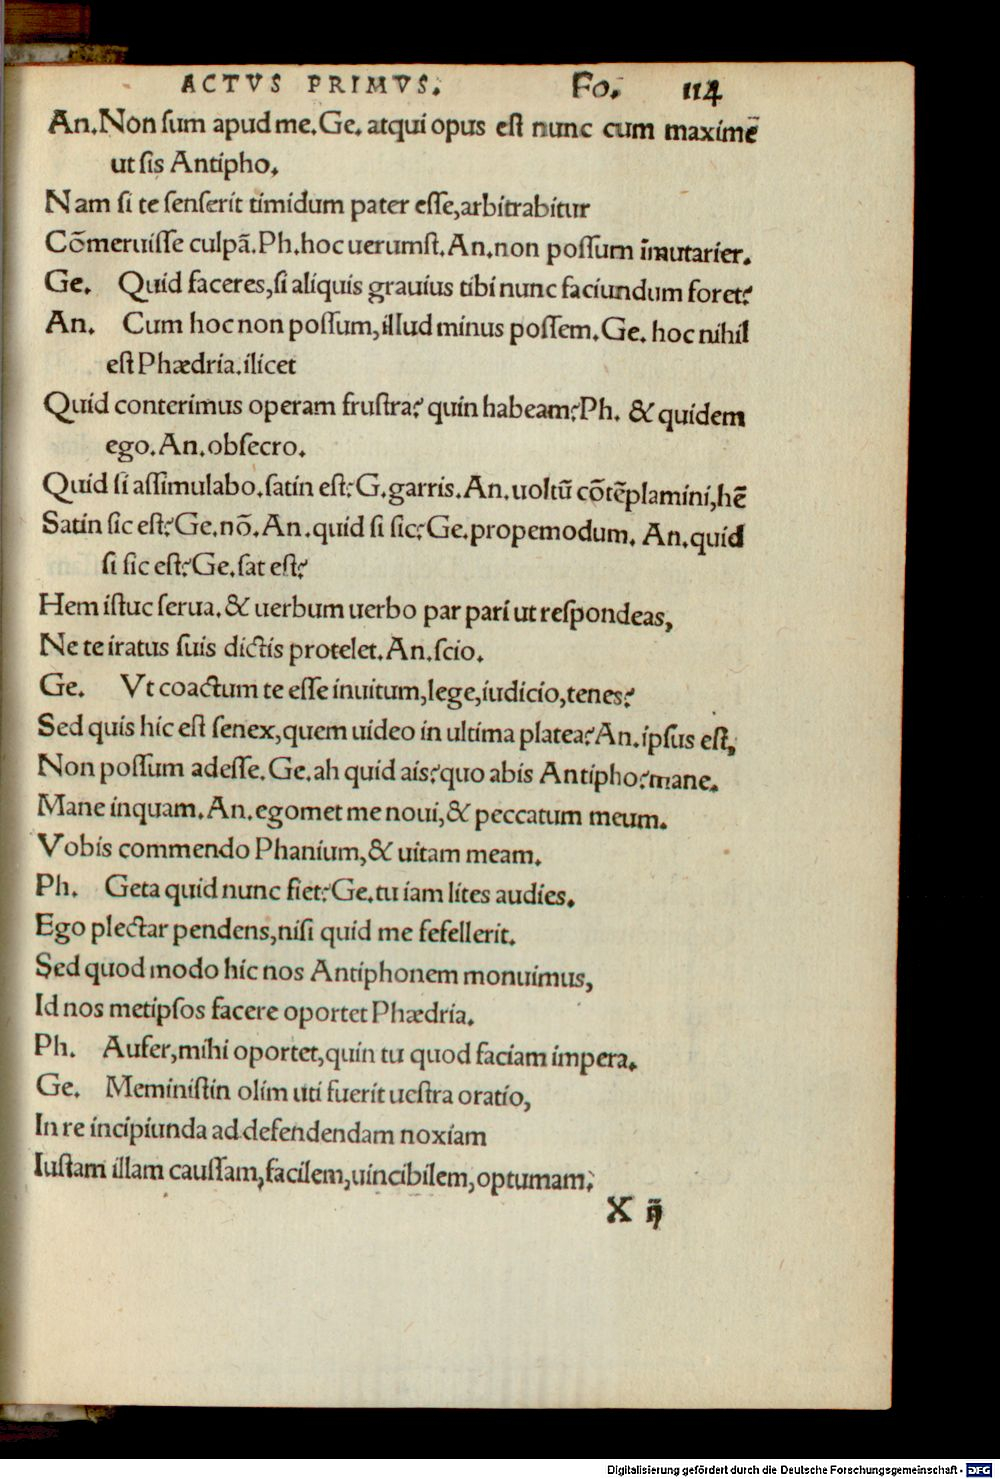 ACTVS PRIMVS. Fo. 114
An.Non ſum apud me.Ge. atqui opus eſt nunc cum maximē
ut ſis Antipho.
Nam ſi te ſenſerit timidum pater eſſe,arbitrabitur
Cōmeruiſſe culpā.Ph.hoc uerumſt.An.non poſſum īmutarier.
Ge. Quid faceres,ſi aliquis grauius tibi nunc faciundum foret?
An. Cum hoc non poſſum,illud minus poſſem.Ge. hoc nihil
eſt Phædria.ilicet
Quid conterimus operam fruſtra? quin habeam?Ph. & quidem
ego.An.obſecro.
Quid ſi aſſimulabo.ſatin eſt?G.garris.An.uoltū cōtēplamini,hē
Satin ſic eſt?Ge.nō.An.quid ſi ſic?Ge.propemodum. An.quid
ſi ſic eſt?Ge.ſat eſt?
Hem iſtuc ſerua.& uerbum uerbo par pari ut reſpondeas,
Ne te iratus ſuis dictis protelet.An.ſcio.
Ge. Vt coactum te eſſe inuitum,lege,iudicio,tenes?
Sed quis hic eſt ſenex,quem uideo in ultima platea?An.ipſus eſt,
Non poſſum adeſſe.Ge.ah quid ais?quo abis Antipho?mane.
Mane inquam.An.egomet me noui,& peccatum meum.
Vobis commendo Phanium,& uitam meam.
Ph. Geta quid nunc fiet?Ge.tu iam lites audies.
Ego plectar pendens,niſi quid me fefellerit.
Sed quod modo hic nos Antiphonem monuimus,
Id nos metipſos facere oportet Phædria.
Ph. Aufer,mihi oportet,quin tu quod faciam impera.
Ge. Meminiſtin olim uti fuerit ueſtra oratio,
In re incipiunda ad defendendam noxiam
Iuſtam illam cauſſam,facilem,uincibilem,optumam?
X ij
Digitalisierung gefördert durch die Deutsche Forschungsgemeinschaft - DFG